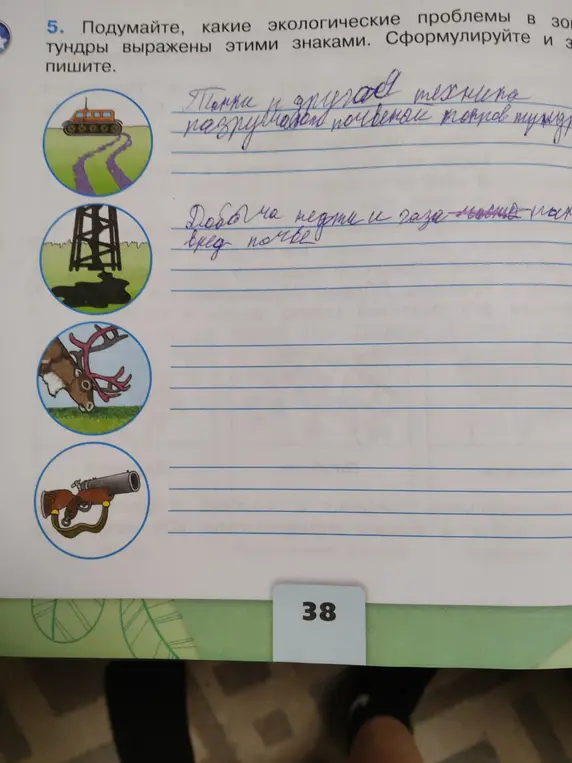 5. Подумайте, какие экологические проблемы в зо
тундры выражены этими знаками. Сформулируйте и з
пишите.
Танки и другая техника
разрушают почвеный покров тундр
Добыча нефти и газа
вред почве
38